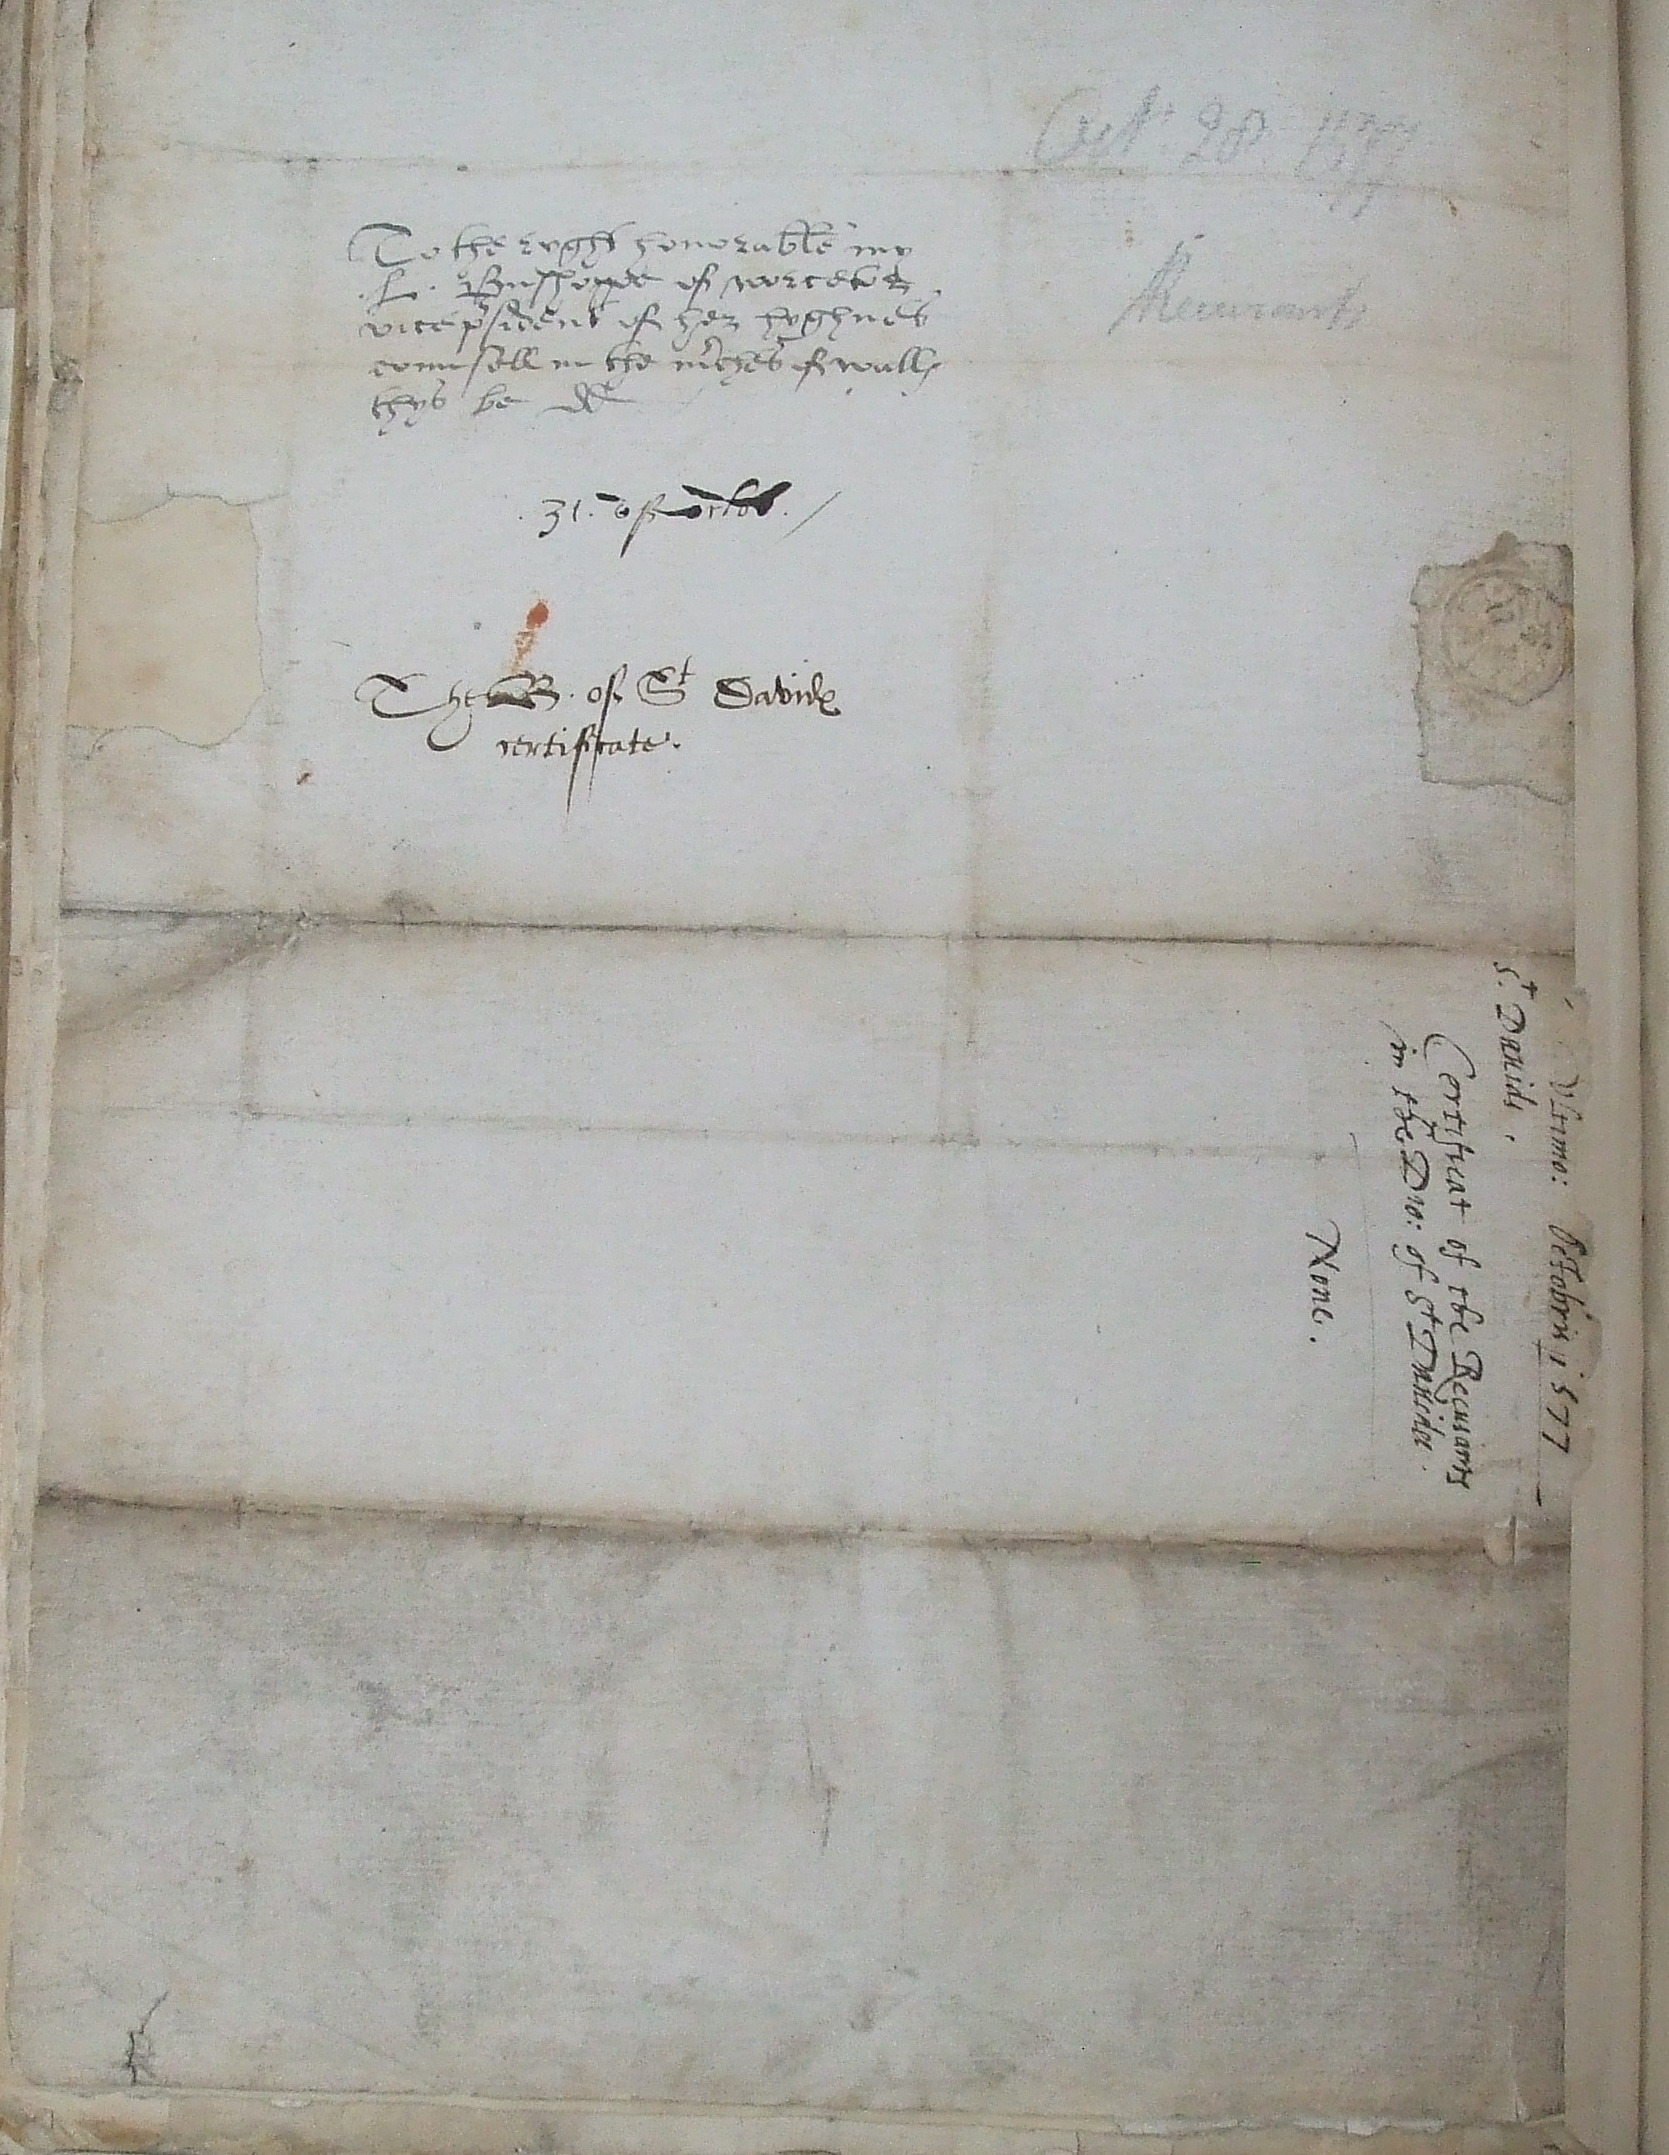 Oct. 28. 1577
Recusants
To the ryght honorable my
.L. Busshoppe of worcetor
vicepsident of her hyghnes
counsell in the mches of wall
thys be dd
.31. of octob.
The B. of St Davids
certificate.
Vltimo: Octobris 1577
St. Dauids.
Certificat of the Recusants
in the Dio: of St Dauides.
None.